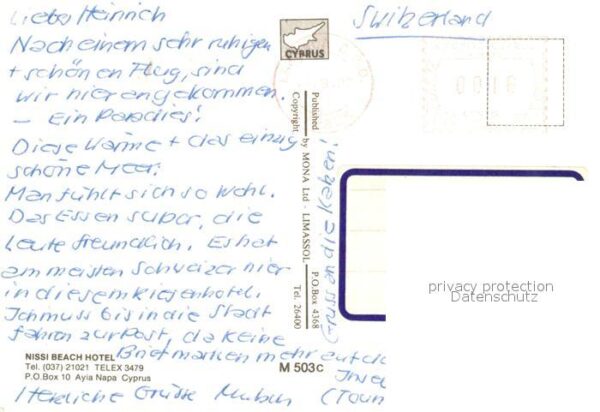 Lieber Heinrich
Nach einem sehr ruhigen
+ schönen Flug, sind
wir hier angekommen.
– Ein Paradies!
Diese Wärme + das einzig
schöne Meer.
Man fühlt sich so wohl.
Das Essen super, die
Leute freundlich. Es hat
am meisten Schweizer hier
in diesem Riesenhotel.
Ich muss bis in die Stadt
fahren zur Post, da keine
Briefmarken mehr auf der
Insel
(Tour
Herzliche Grüsse
Gruss an die
NISSI BEACH HOTEL
Tel. (037) 21021 TELEX 3479
P.O.Box 10 Ayia Napa Cyprus
CYPRUS
Published
Copyright by MONA Ltd - LIMASSOL P.O.Box 4368
Tel. 26400
M 503c
Switzerland
0016
privacy protection
Datenschutz